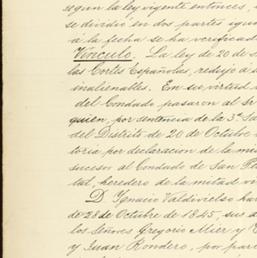 segun la ley vigente entonces,
se dividió en dos partes igua
á la fecha se ha verificad
Vínculo. La ley de 20 de
las Cortes Españolas, redujo á
inalienables. En su virtud
del Condado pasaron al Sr
quien, por sentencia de la 3ª Sa
del Distrito de 20 de Octubre
toria por declaracion de la mi
sucesor al Condado de San Pe
tal, heredero de la mitad vi
D. Ignacio Valdivielso
de 28 de Octubre de 1845, sus
los Señores Gregorio Mier y
y Juan Rondero, por par